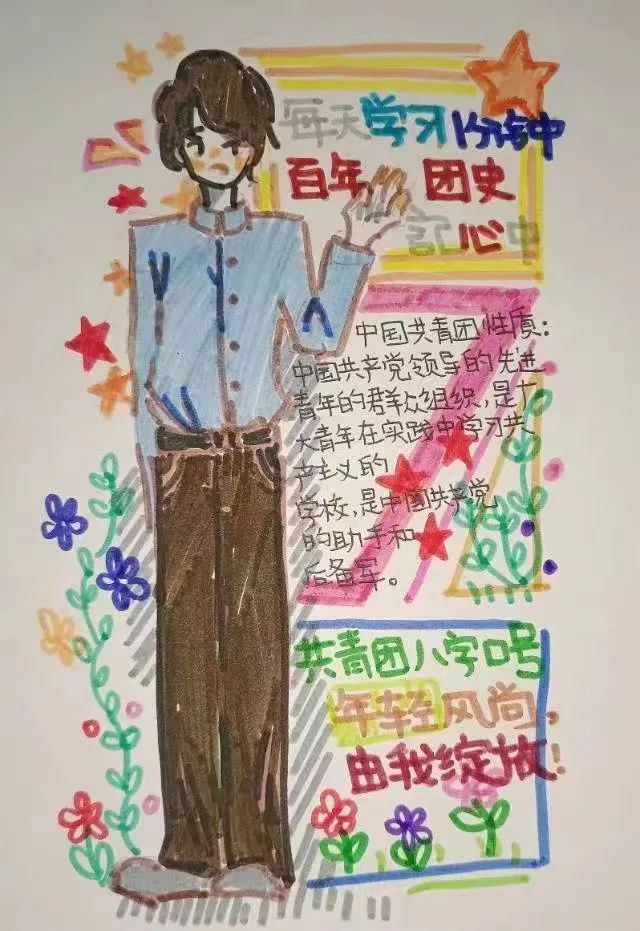 每天学习1分钟
百年团史
記心中
中国共青团性质：
中国共产党领导的先进
青年的群众组织，是广
大青年在实践中学习共
产主义的
学校，是中国共产党
的助手和
后备军。
共青团八字口号
年轻风尚，
由我绽放！